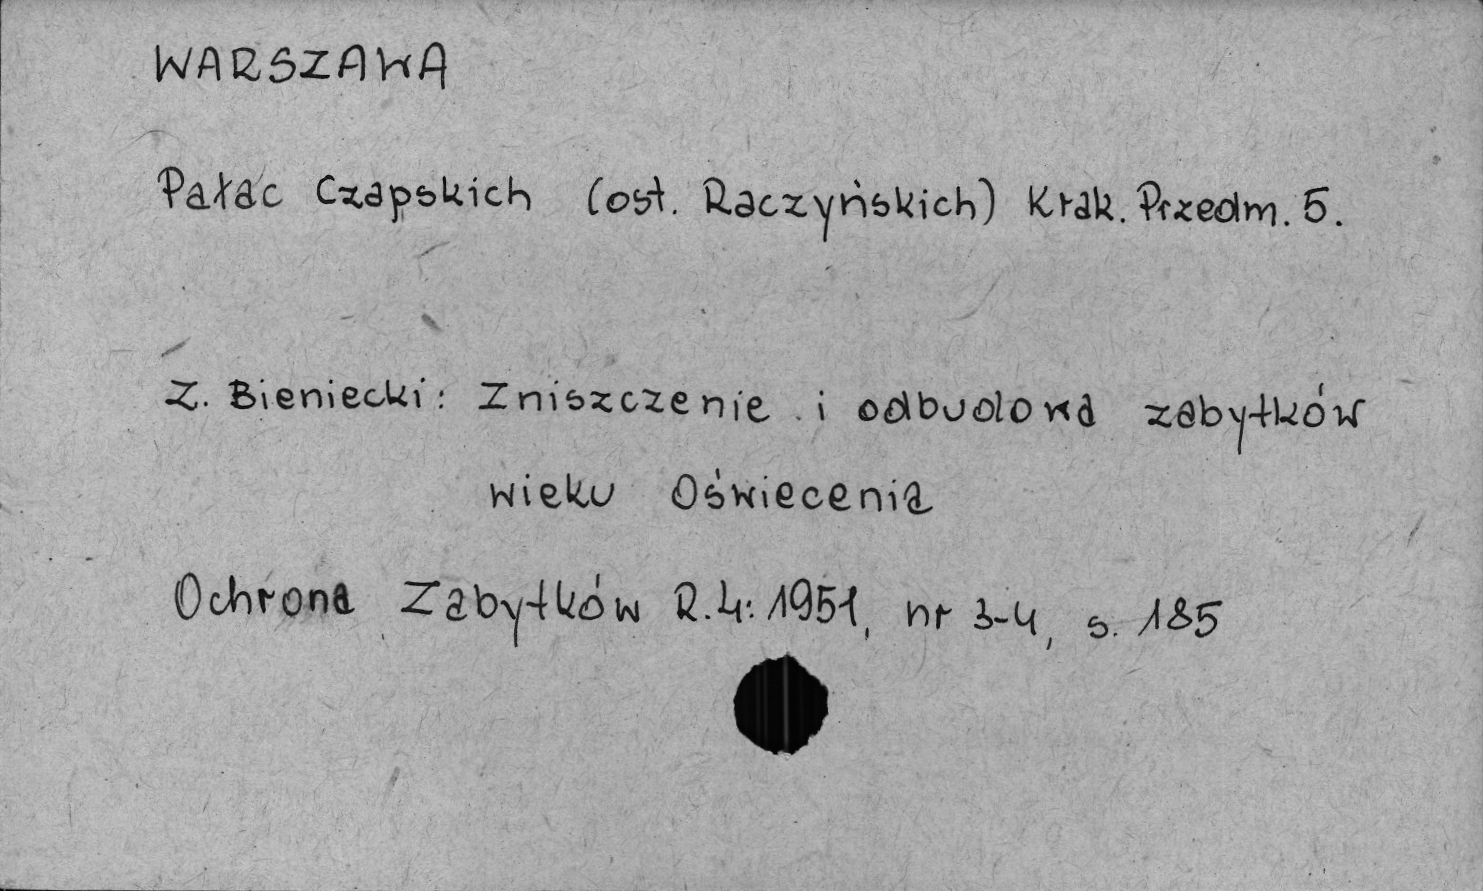 WARSZAWA
Pałac Czapskich (ost. Raczyńskich) Krak. Przedm. 5.
Z. Bieniecki: Zniszczenie i odbudowa zabytków
wieku Oświecenia
Ochrona Zabytków R.4: 1951, nr 3-4, s. 185